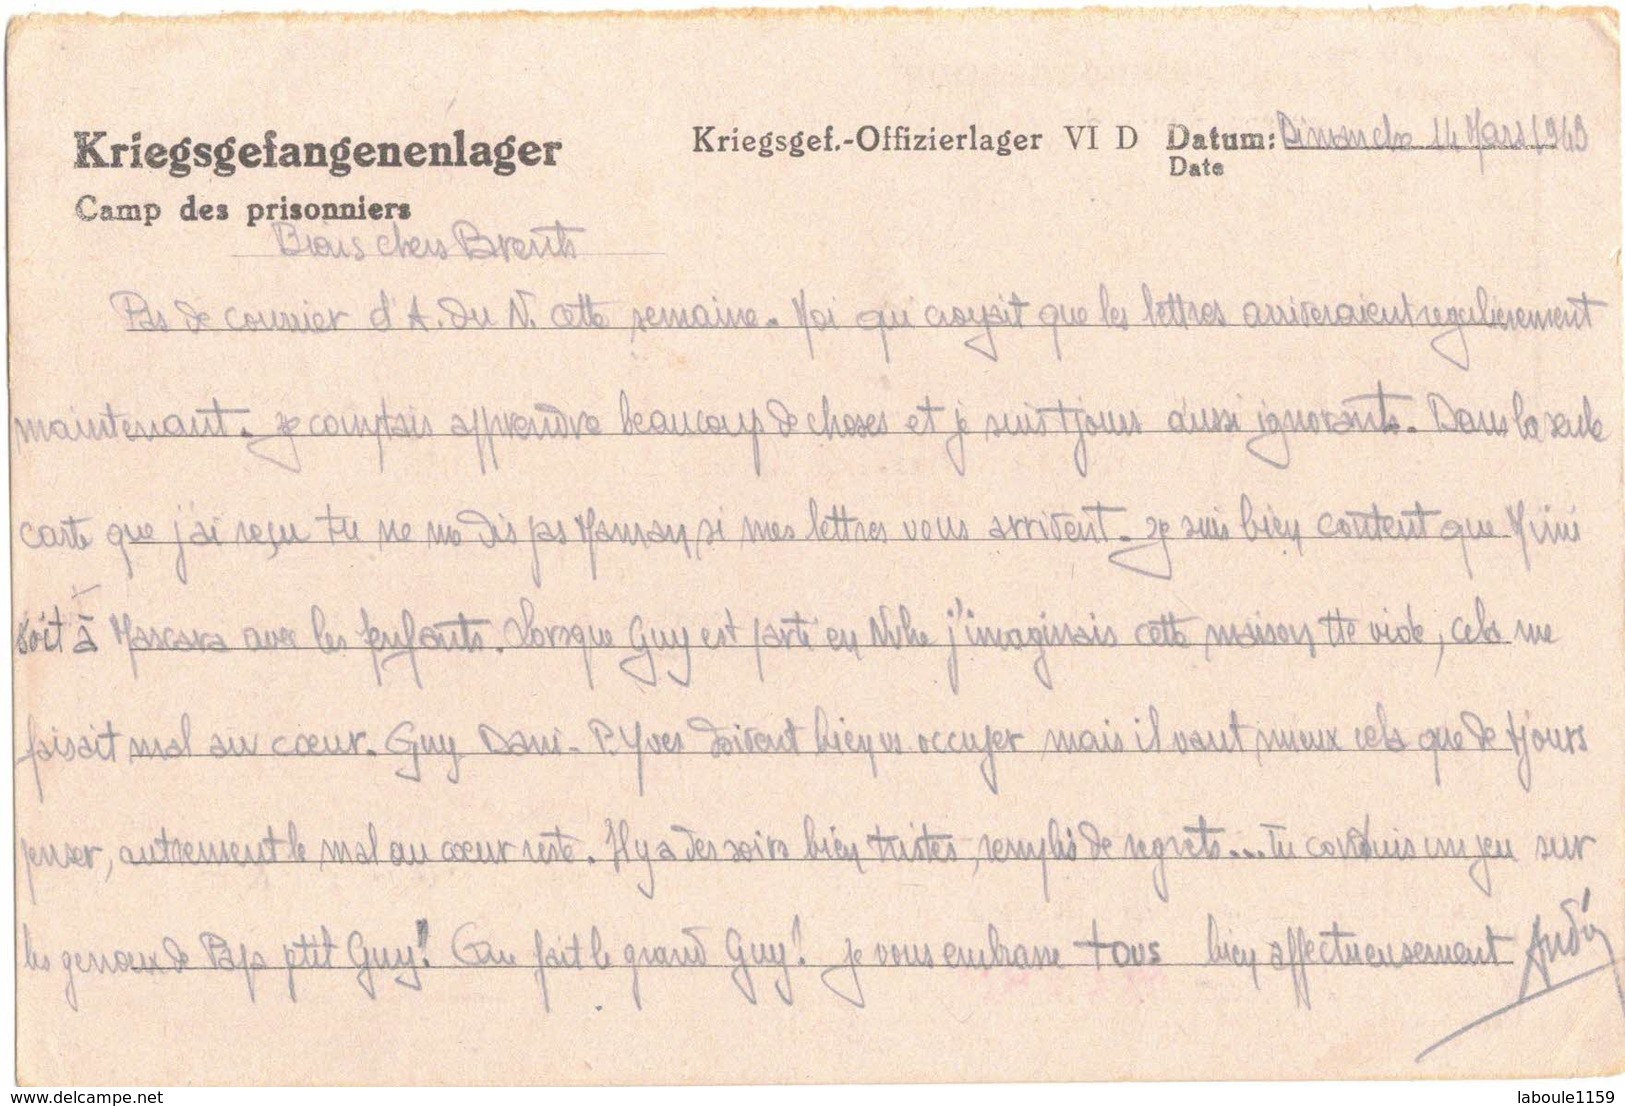 Kriegsgefangenenlager
Camp des prisonniers
Kriegsgef.-Offizierlager VI D Datum: Dimanche 14 Mars 1943
Date
Biens chers Parents
Pas de courrier d'A. du N. cette semaine. Moi qui croyait que les lettres arriveraient regulierement
maintenant. Je comptais apprendre beaucoup de choses et je suis tjours aussi ignorant. Dans la seule
carte que j'ai reçu tu ne me dis pas Maman, si mes lettres vous arrivent. Je suis bien content que Mimi
soit à Mascara avec les enfants. Lorsque Guy est parti en j'imaginais cette maison tte vide, cela me
faisait mal au cœur. Guy Dani - P. Yves doivent bien vs occuper mais il vaut mieux cela que de tjours
penser, autrement le mal au cœur reste. Il y a des soirs bien tristes, remplis de regrets... Tu conduis un peu sur
les genoux de Papa ptit Guy! Que fait le grand Guy! je vous embrasse tous bien affectueusement André
delcampe.net
laboule1159